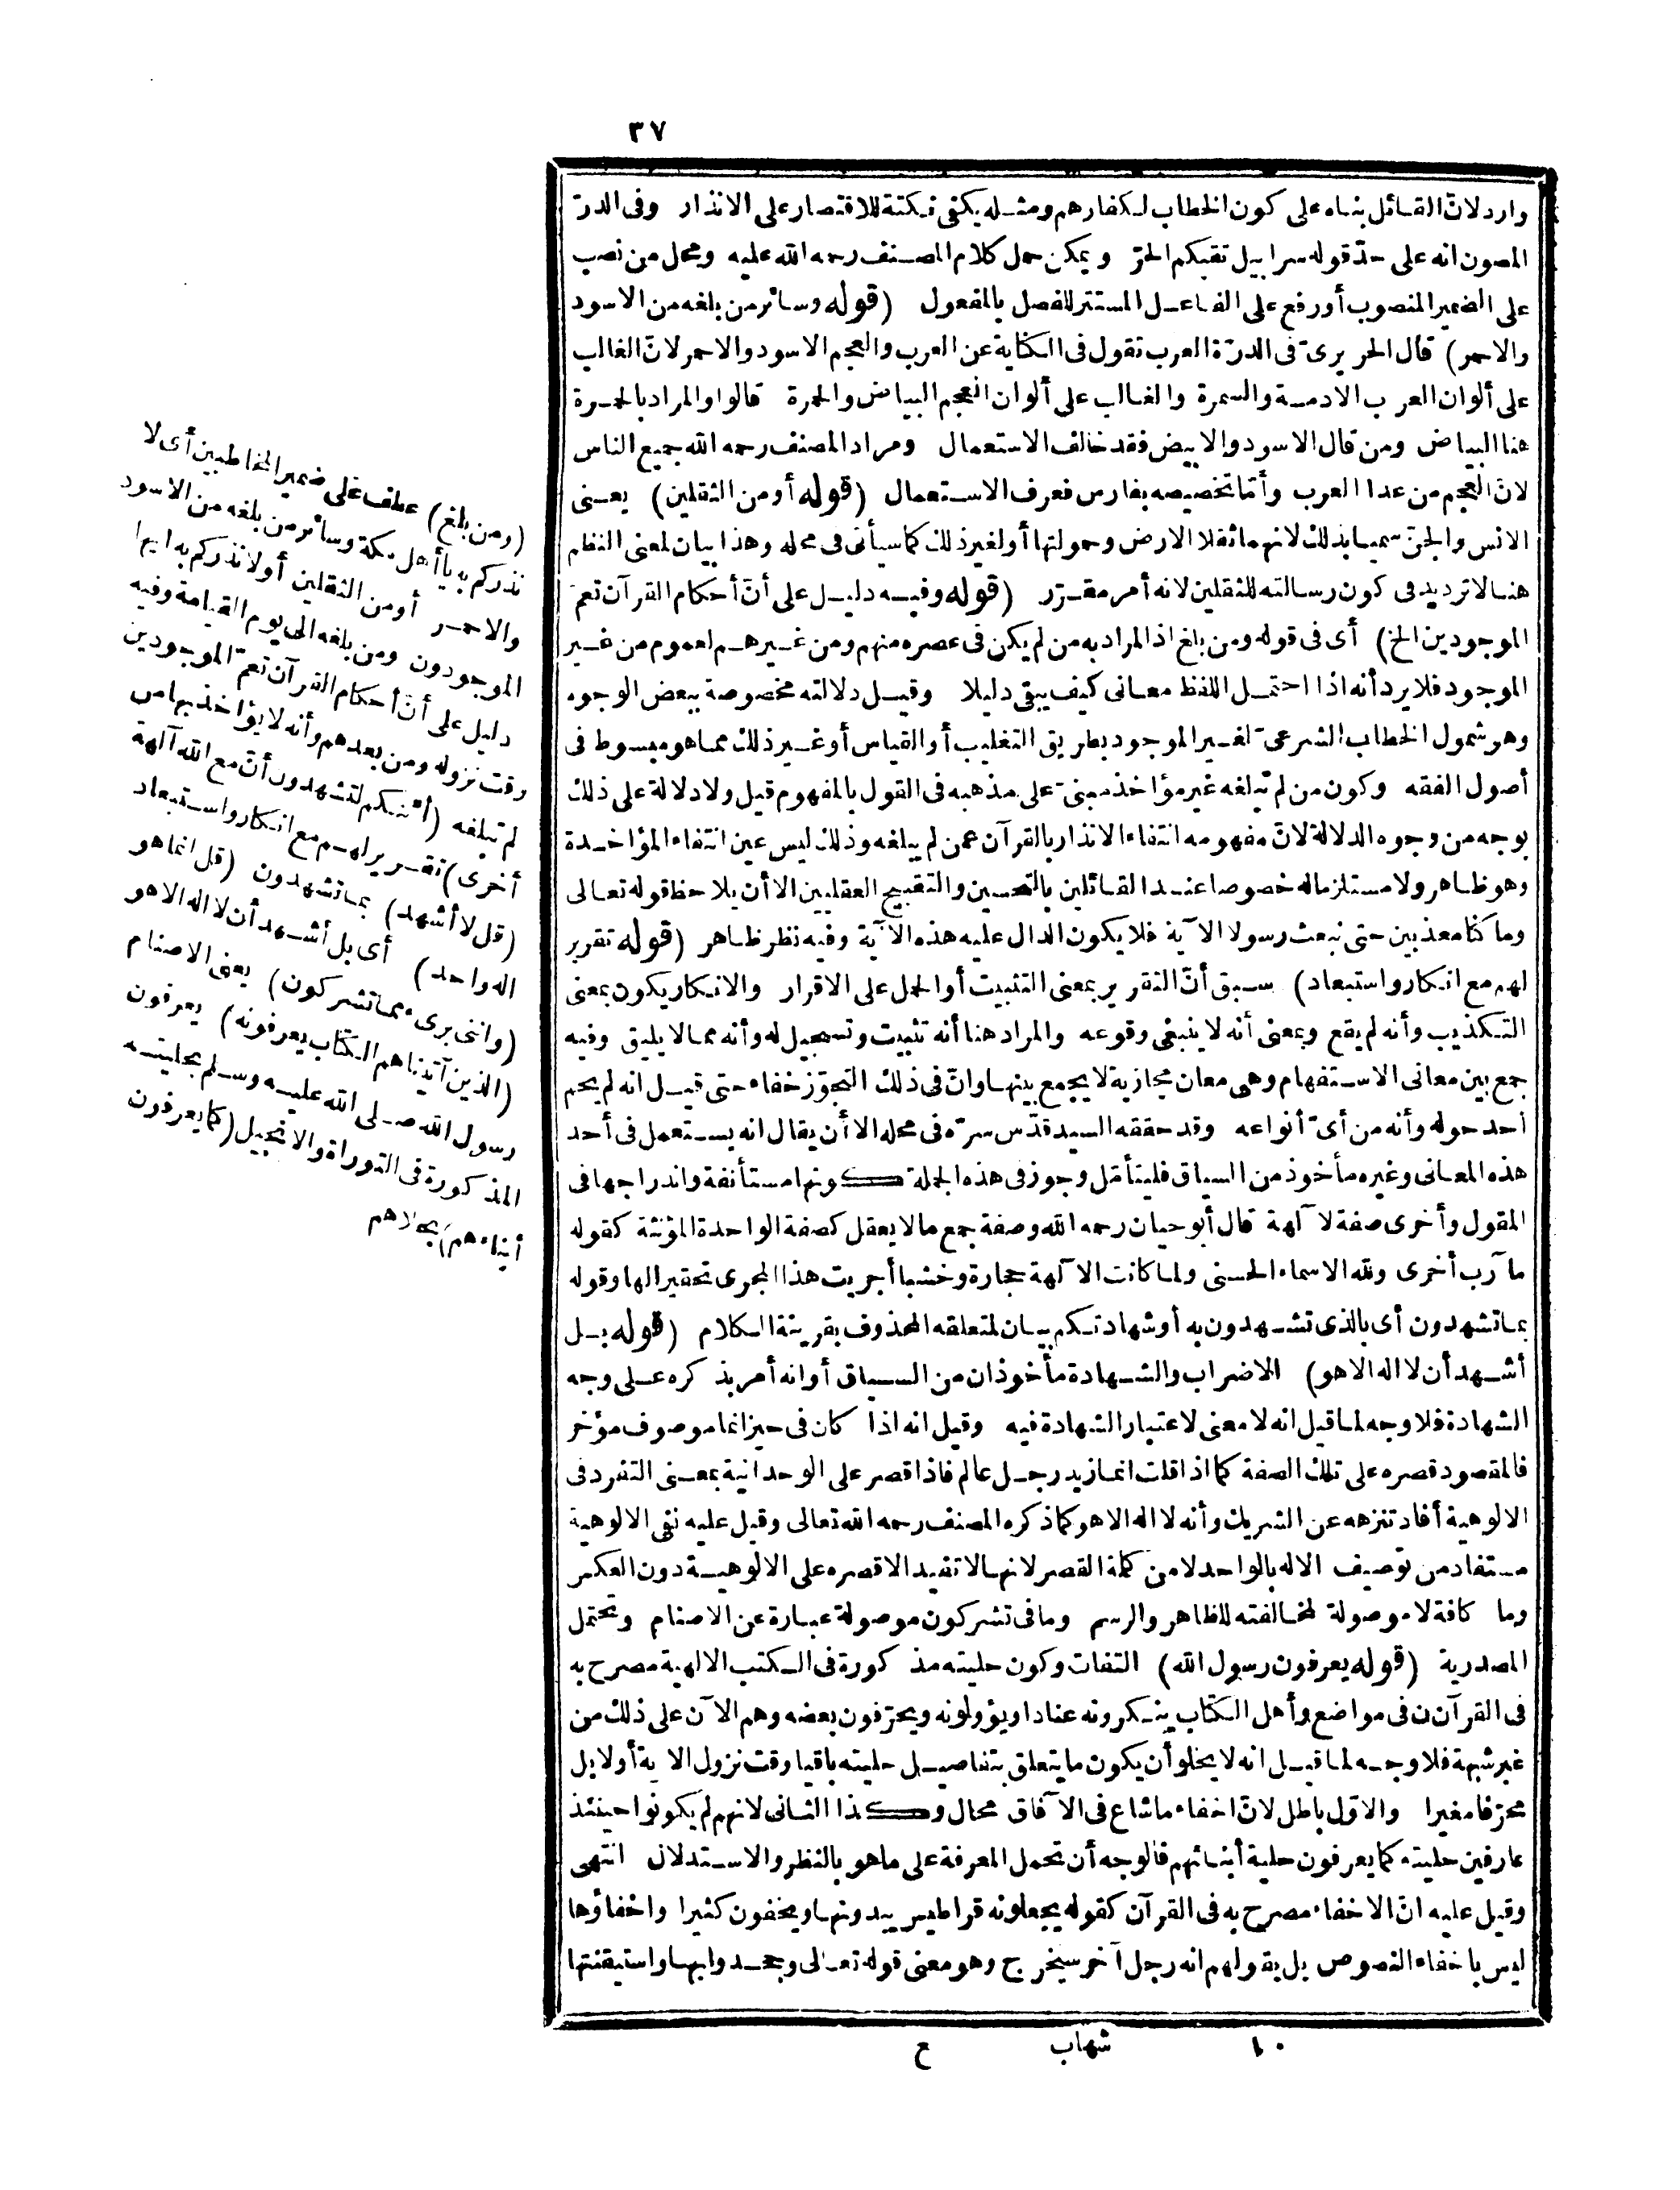 ٣٧
وارد لانّ القائل بناه على كون الخطاب لكفارهم ومثله يكفى نكتة للاقتصار على الانذار وفى الدرّ
المصون انه على حدّ قوله سرابيل تقيكم الحرّ ويمكن حمل كلام المصنف رحمه الله عليه ومحل من نصب
على الضمير المنصوب أو رفع على الفاعل المستتر للفصل بالمفعول (قوله وسائر من بلغه من الاسود
والاحمر) قال الحريرىّ فى الدرّة العرب تقول فى الكناية عن العرب والعجم الاسود والاحمر لانّ الغالب
على ألوان العرب الادمة والسمرة والغالب على ألوان العجم البياض والحمرة قالوا والمراد بالحمرة
هنا البياض ومن قال الاسود والابيض فقد خالف الاستعمال ومراد المصنف رحمه الله جميع الناس
لانّ العجم من عدا العرب وأمّا تخصيصه بفارس فعرف الاستعمال (قوله أو من الثقلين) يعنى
الانس والجنّ سميا بذلك لانهما ثقلا الارض وحمولتها أو لغير ذلك كما سيأتى فى محله وهذا بيان لمعنى النظم
هنا لا ترديد فى كون رسالته للثقلين لانه أمر مقرّر (قوله وفيه دليل على أنّ أحكام القرآن تعمّ
الموجودين الخ) أى فى قوله ومن بلغ اذ المراد به من لم يكن فى عصره منهم ومن غيرهم لعموم من غير
الموجود فلا يرد أنه اذا احتمل اللفظ معانى كيف يبقى دليلا وقيل دلالته مخصوصة ببعض الوجوه
وهو شمول الخطاب الشرعىّ لغير الموجود بطريق التغليب أو القياس أو غير ذلك مما هو مبسوط فى
أصول الفقه وكون من لم تبلغه غير مؤاخذ مبنىّ على مذهبه فى القول بالمفهوم قيل ولا دلالة على ذلك
بوجه من وجوه الدلالة لانّ مفهومه انتفاء الانذار بالقرآن عمن لم يبلغه وذلك ليس عين انتفاء المؤاخدة
وهو ظاهر ولا مستلزما له خصوصا عند القائلين بالتحسين والتقبيح العقليين الا أن يلاحظ قوله تعالى
وما كنا معذبين حتى نبعث رسولا الآية فلا يكون الدال عليه هذه الآية وفيه نظر ظاهر (قوله تقرير
لهم مع انكار واستبعاد) سبق أنّ التقرير بمعنى التثبيت أو الحمل على الاقرار والانكار يكون بمعنى
التكذيب وأنه لم يقع وبمعنى أنه لا ينبغى وقوعه والمراد هنا أنه تثبيت وتسجيل له وأنه مما لا يليق وفيه
جمع بين معانى الاستفهام وهى معان مجازية لا يجمع بينها وانّ فى ذلك التجوّز خفاء حتى قيل انه لم يحم
أحد حوله وأنه من أىّ أنواعه وقد حققه السيد قدّس سرّه فى محله الا أن يقال انه يستعمل فى أحد
هذه المعانى وغيره مأخوذ من السياق فليتأمّل وجوز فى هذه الجملة كونها مستأنفة واندراجها فى
المقول وأخرى صفة لآلهة قال أبو حيان رحمه الله وصفة جمع ما لا يعقل كصفة الواحدة المؤنثة كقوله
مآرب أخرى ولله الاسماء الحسنى ولما كانت الآلهة حجارة وخشبا أجريت هذا المجرى تحقيرا لها وقوله
بما تشهدون أى بالذى تشهدون به أو شهادتكم بيان لمتعلقه المحذوف بقرينة الكلام (قوله بل
أشهد أن لا اله الا هو) الاضراب والشهادة مأخوذان من السياق أو انه أمر بذكره على وجه
الشهادة فلا وجه لما قيل انه لا معنى لاعتبار الشهادة فيه وقيل انه اذا كان فى حيز انما موصوف مؤخر
فالمقصود قصره على تلك الصفة كما اذا قلت انما زيد رجل عالم فاذا قصر على الوحدانية بمعنى التفرد فى
الالوهية أفاد تنزهه عن الشريك وأنه لا اله الا هو كما ذكره المصنف رحمه الله تعالى وقيل عليه نفى الالوهية
مستفاد من توصيف الاله بالواحد لا من كلمة القصر لانها لا تفيد الا قصره على الالوهية دون العكس
وما كافة لا موصولة لمخالفته للظاهر والرسم وما فى تشركون موصولة عبارة عن الاصنام وتحتمل
المصدرية (قوله يعرفون رسول الله) التفات وكون حليته مذكورة فى الكتب الالهية مصرح به
فى القرآن ن فى مواضع وأهل الكتاب ينكرونه عنادا ويؤولونه ويحرّفون بعضه وهم الآن على ذلك من
غير شبهة فلا وجه لما قيل انه لا يخلو أن يكون ما يتعلق بتفاصيل حليته باقيا وقت نزول الآية أولا بل
محرّفا مغيرا والاوّل باطل لانّ اخفاء ما شاع فى الآفاق محال وكذا الثانى لانهم لم يكونوا حينئذ
عارفين حليته كما يعرفون حلية أبنائهم فالوجه أن تحمل المعرفة على ما هو بالنظر والاستدلال انتهى
وقيل عليه انّ الاخفاء مصرح به فى القرآن كقوله يجعلونه قراطيس يبدونها ويخفون كثيرا واخفاؤها
ليس باخفاء النصوص بل بقولهم انه رجل آخر سيخرج وهو معنى قوله تعالى وجحدوا بها واستيقنتها
(ومن بلغ) عطف على ضمير المخاطبين أى لا
نذركم به يا أهل مكة وسائر من بلغه من الاسود
والاحمر أو من الثقلين أو لا نذركم به ايها
الموجودون ومن بلغه الى يوم القيامة وفيه
دليل على أنّ أحكام القرآن تعمّ الموجودين
وقت نزوله ومن بعدهم وأنه لا يؤاخذ بها من
لم تبلغه (أئنكم لتشهدون أنّ مع الله آلهة
أخرى) تقرير لهم مع انكار واستبعاد
(قل لا أشهد) بما تشهدون (قل انما هو
اله واحد) أى بل أشهد أن لا اله الا هو
(واننى برىء مما تشركون) يعنى الاصنام
(الذين آتيناهم الكتاب يعرفونه) يعرفون
رسول الله صلى الله عليه وسلم بحليته
المذكورة فى التوراة والانجيل (كما يعرفون
أبناءهم) بحلاهم
١٠ شهاب ع